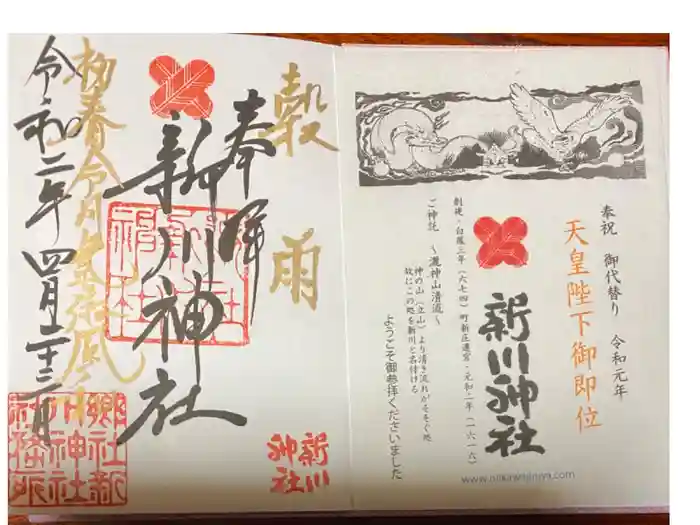 奉祝 御代替り 令和元年
天皇陛下御即位
新川神社
創建・白鳳三年(六七四)町新庄遷宮・元和二年(一六一六)
ご神託 ～瀧神山清流～
神の山(立山)より清き流れがそそぐ処
故にこの処を新川と名付ける
ようこそ御参拝くださいました
www.niikawajinjya.com
穀雨
奉拝
新川神社
初春令月
令和二年四月二十二日
新川神社
郷社新川神社社務所